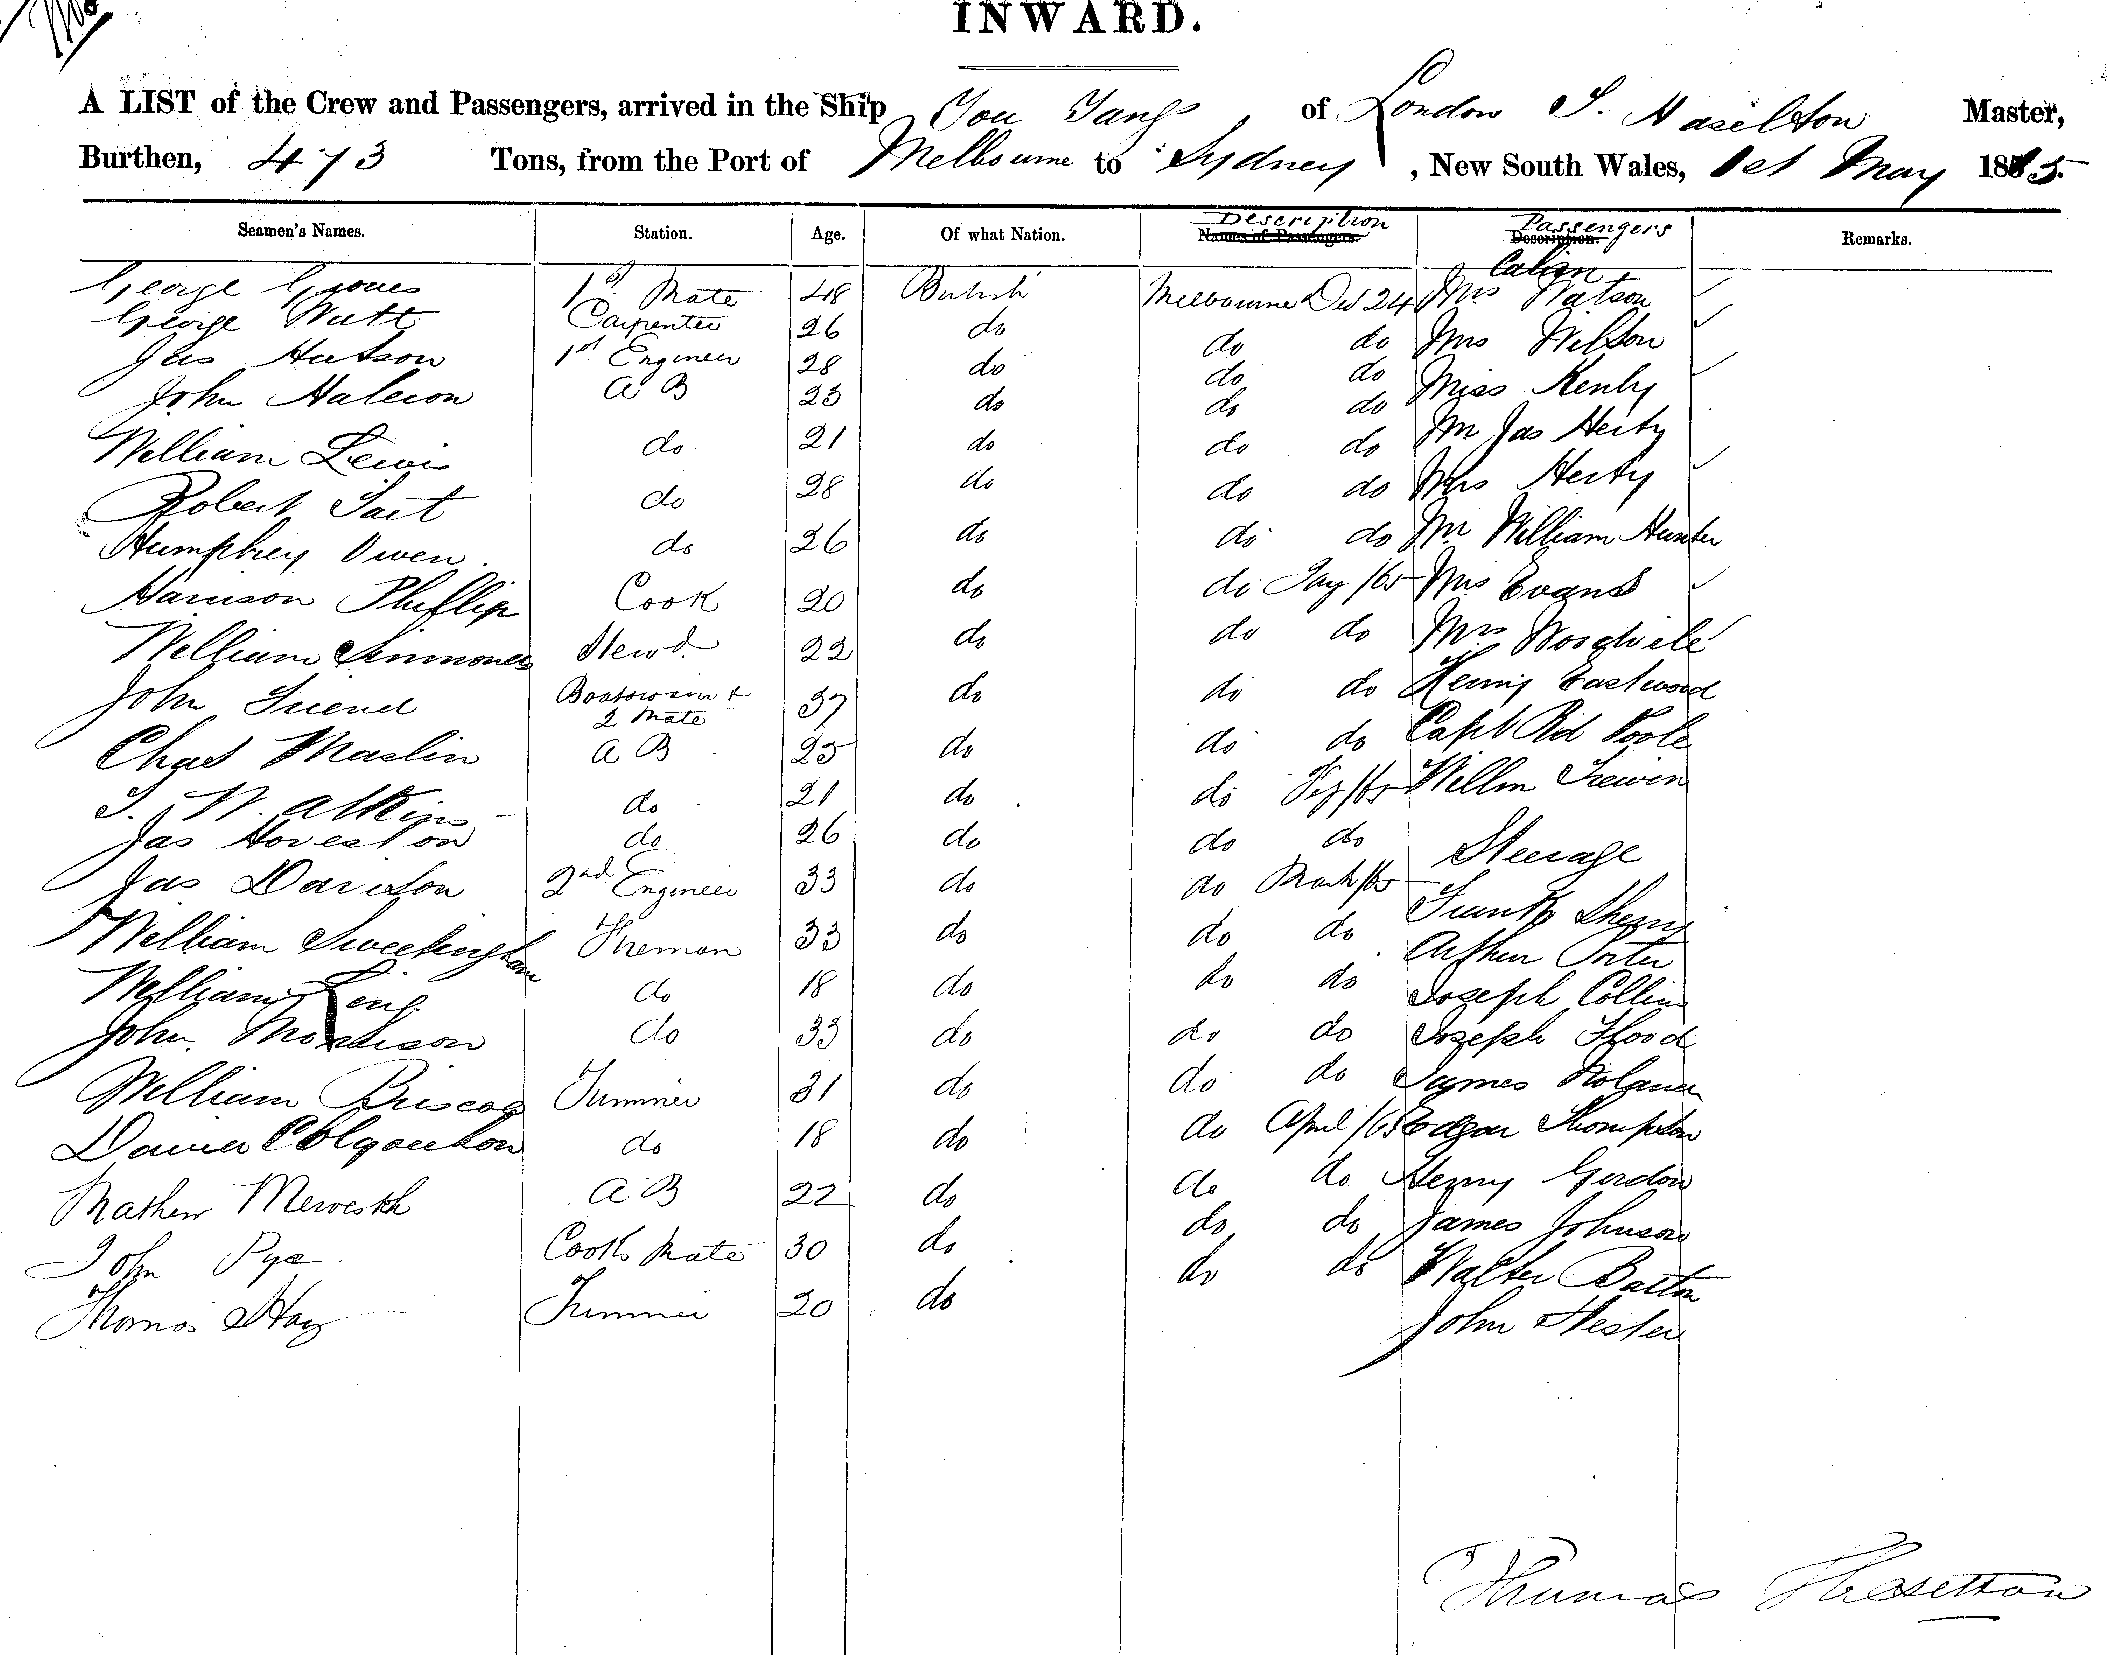 INWARD.
A LIST of the Crew and Passengers, arrived in the Ship You Yangs of London T. Haselton Master,
Burthen, 473 Tons, from the Port of Melbourne to Sydney, New South Wales, 1st May 1865.
Seamen's Names. Station. Age. Of what Nation. Description Names of Passengers. Passengers Description. Remarks.
Cabin
George 1st Mate 48 British Melbourne Dec 24 Mrs Watson
George Watt Carpenter 26 do do do Mrs Wilson
Jas Hutson 1st Engineer 28 do do do Miss Kenly
John A B 23 do do do Mr Jas Herty
William Lewis do 21 do do do Mrs Herty
Robert Tait do 28 do do do Mr William Hunter
Humphrey Owen do 26 do do do
Harrison Phillip Cook 20 do do Jay /65 Mrs Evans
William Simmones Stewd. 22 do do do Mrs
John Friend Boatswain & 2 Mate 37 do do do Eastwood
Chas Maslin A B 25 do do do Capt Rd Poole
T. W. Atkins do 21 do do /65 Willm
Jas Hoveston do 26 do do do Steerage
Jas Davison 2nd Engineer 33 do do March /65 Frank
William Sweetingham Fireman 33 do do do Arthur Porter
William Leng do 18 do do do Joseph Collins
John. Morrison do 33 do do do Joseph Flood
William Briscoe Trimmer 31 do do do James
Colquhon do 18 do do April /65 Edgar Thompson
Mathew A B 22 do do do Henry Gordon
John Pye Cooks Mate 30 do do do James Johnson
Thomas Hay Trimmer 20 do do do Walter Barton
John Hester
Thomas Haselton